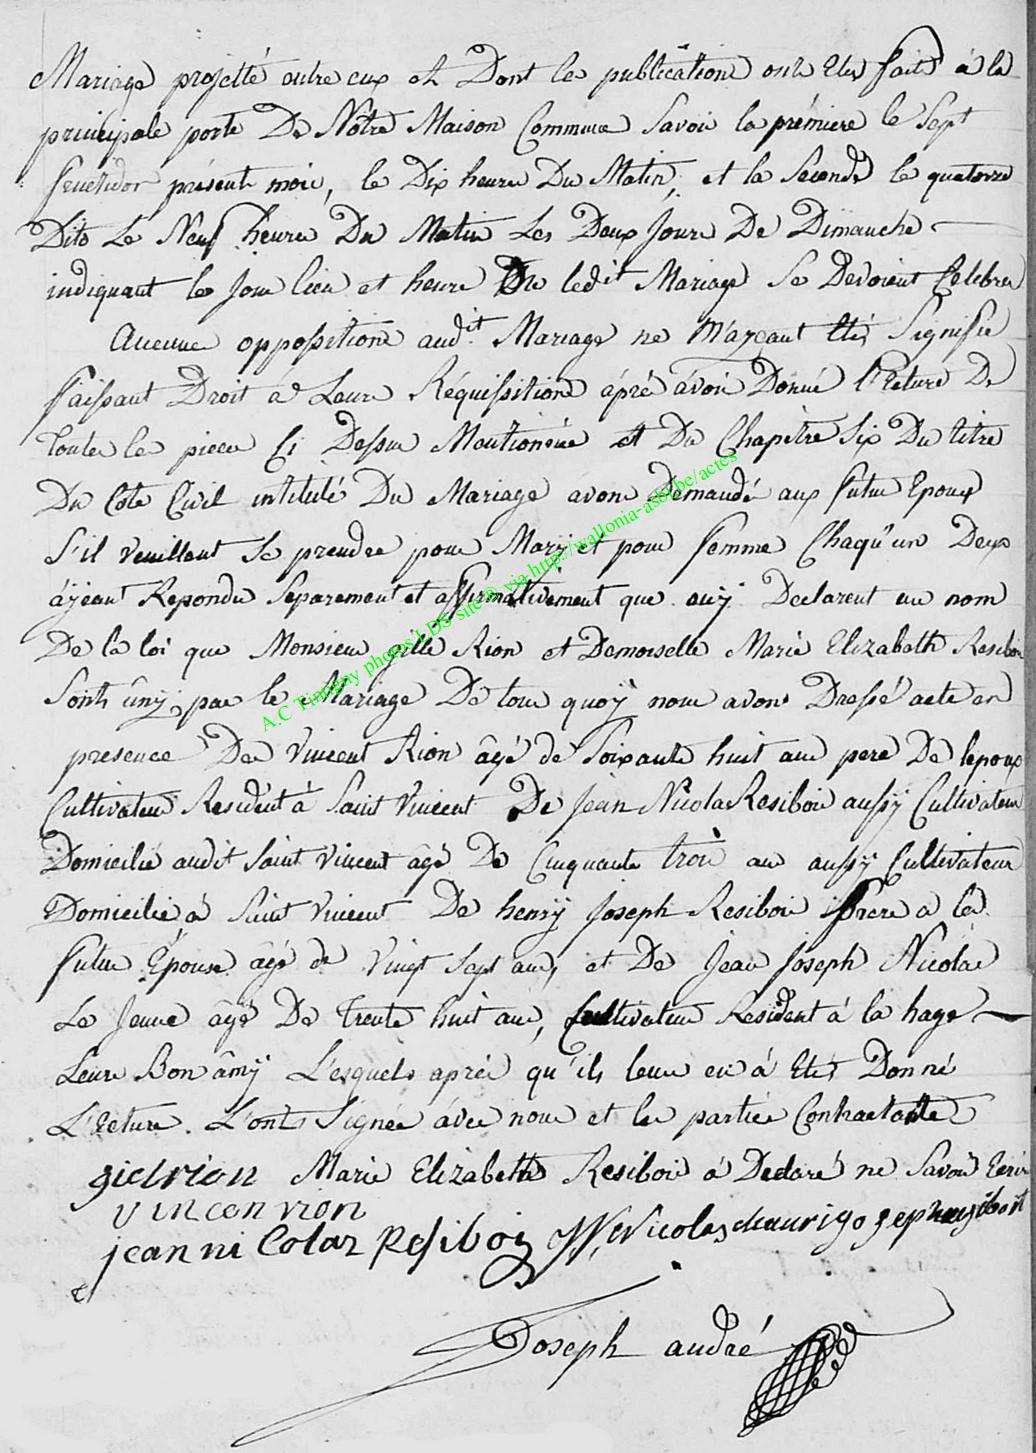 Mariage projetté entre eux et Dont les publications ont Etés faites á la
principale porte De Nôtre Maison Commune Savoir la prémiere le Sept
fructidor présent mois, le Dix heures Du Matin, et la Seconde le quatorze
Dito Le Neuf heures Du Matin Les Deux Jours De Dimanche
indiquant les Jour lieu et heure ledit Mariage Se Devoient Celebrer
Aucune oppossitions aud.it Mariage ne M'ayeant Etés Signifié
faissant Droit á Leurs Réquissitions áprés ávoir Donné l'Ecture De
toutes les pieces Ci Dessus Mentionnée et Du Chapitre Six Du titre
Du Cote Civil intitulé Du Mariage avons Demandé aux futur Epoux
S'il veuillent Se prendre pour Marÿ et pour femme Chaqu'un Deux
áyeant Repondu Separement et affirmativement que ouÿ Declarent au nom
De la loi que Monsieur gille Rion et Demoiselle Marie Elizabeth Resiboi
Sonts ûnÿ par le Mariage De tous quoÿ nous avons Dressé acte en
presence De Vincent Rion âgé de Soixante huit ans pere De lepoux
Cultivateur Resident á Saint Vincent De Jean Nicolas Resibois aussÿ Cultivateur
Domicilié audit Saint Vincent âgé De Cinquante trois ans aussÿ Cultivateur
Domicilié á Saint Vincent De henrÿ Joseph Resibois frere a la
future Epouse âgé de Vingt Sept ans, et De Jean Joseph Nicolas
Le Jeune âgé De Trente huit ans, Cultivateur Resident á la hage
Leurs Bon âmÿ L'esquels aprés qu'ils leurs en á Etés Donné
L'Ecture. L'onts Signée ávec nous et les parties Contractante
giel rion Marie Elizabeth Resibois á Declaré ne Savoir Ecrire
vincen rion
jean ni Colaz Resiboi Nicolas
Joseph andré
A.C Tintigny photos LDS site © via http://wallonia-asbl.be/actes